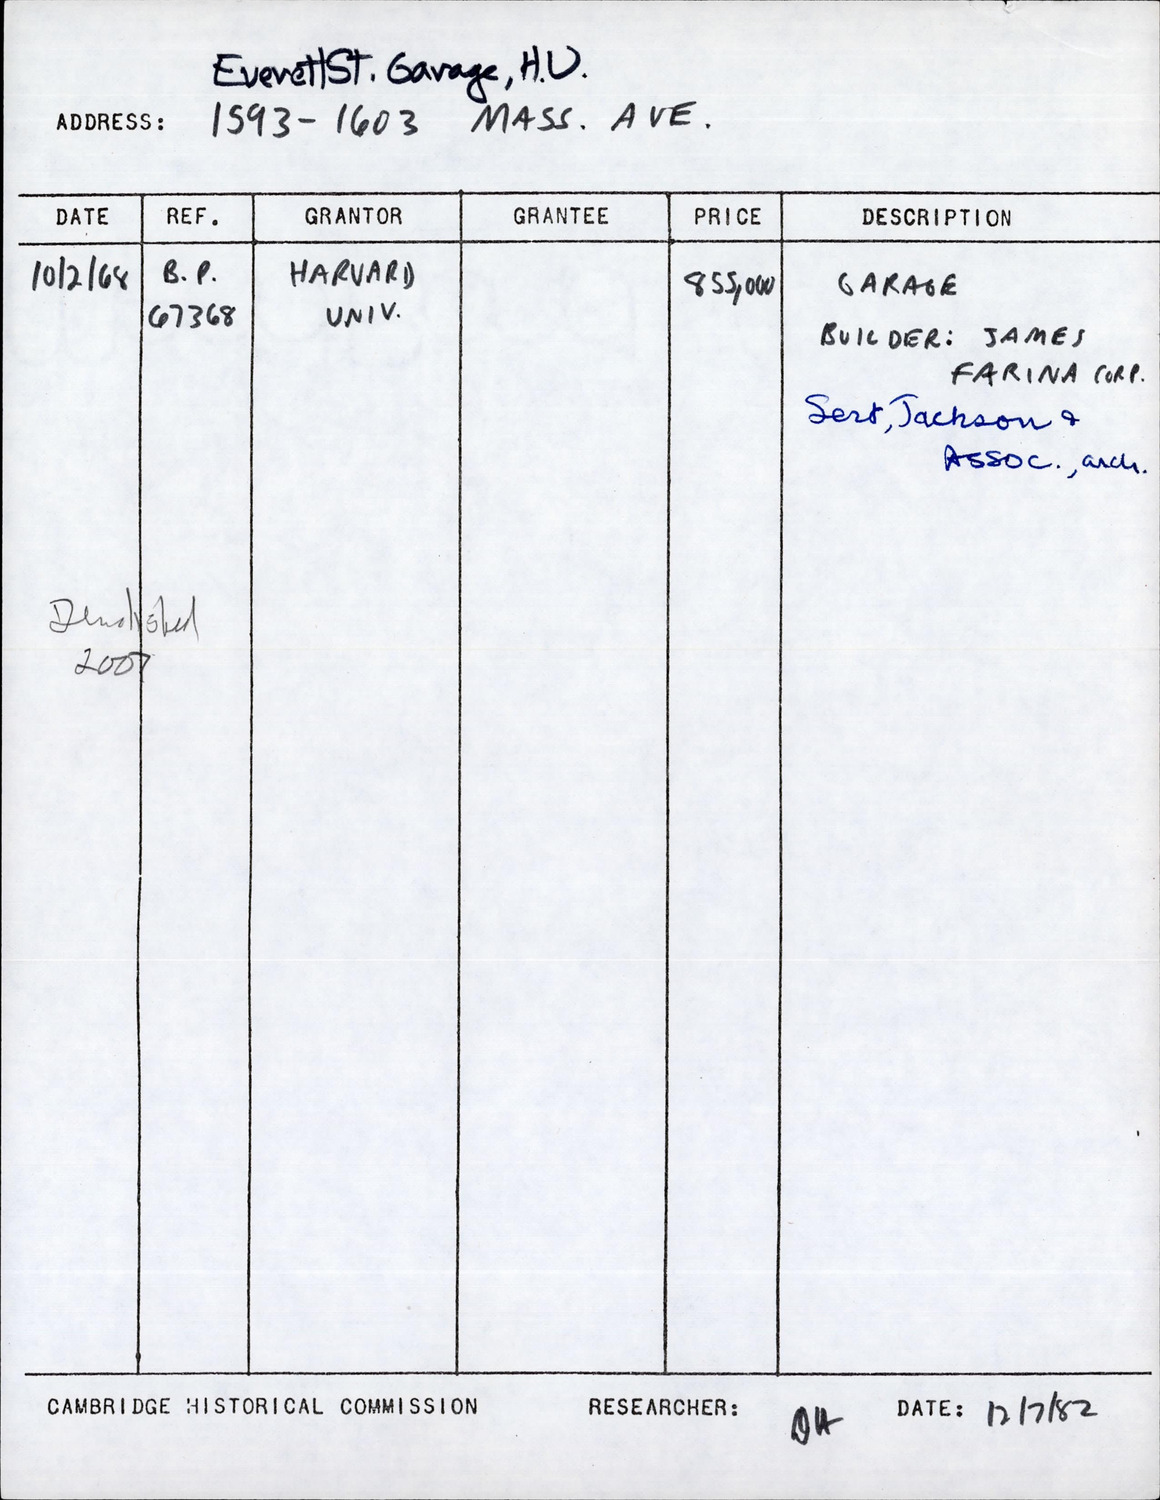 Everett St. Garage, H.U.
ADDRESS: 1593-1603 MASS. AVE.
DATE REF. GRANTOR GRANTEE PRICE DESCRIPTION
10/2/68 B.P. HARVARD 855,000 GARAGE
67368 UNIV.
BUILDER: JAMES
FARINA CORP.
Sert, Jackson &
ASSOC., arch.
Demolished
2007
CAMBRIDGE HISTORICAL COMMISSION RESEARCHER: DH DATE: 12/7/82